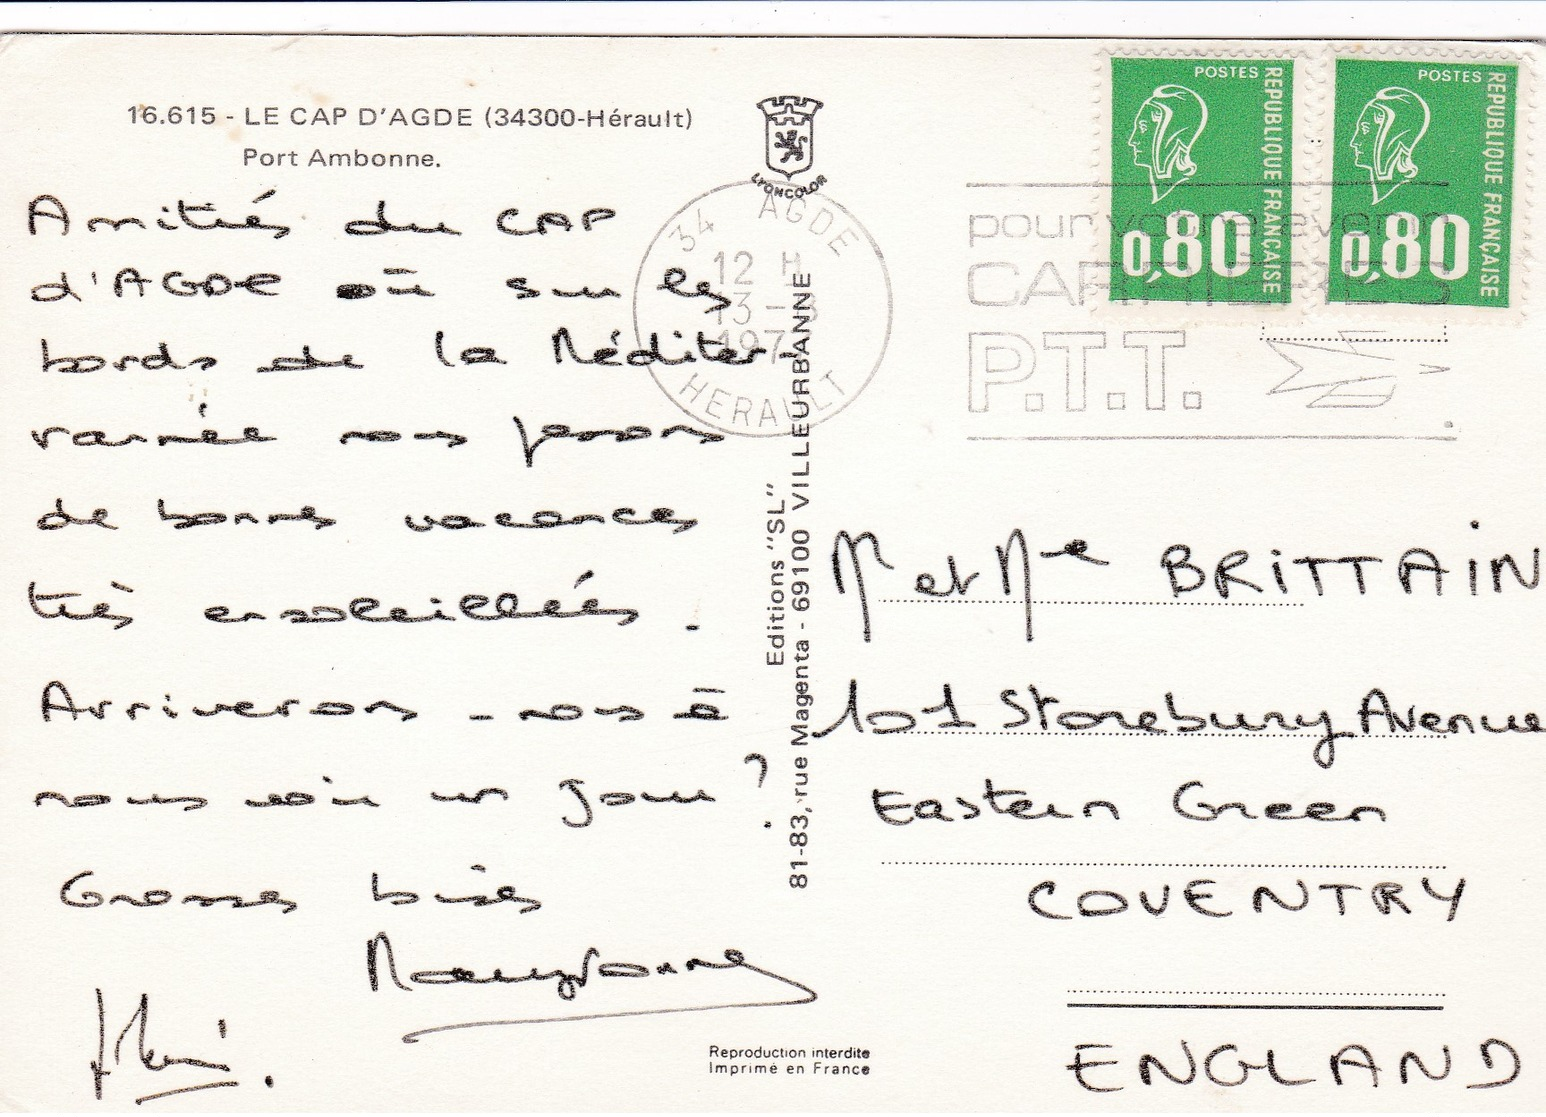 16.615 - LE CAP D'AGDE (34300-Hérault)
Port Ambonne.
LYONCOLOR
Amitiés du CAP
d'AGDE où sur les
bords de la Méditer-
rannée nous passons
de bonnes vacances
très ensoleillées.
Arriverons-nous à
nous voir un jour ?
Grosses bises
34 AGDE
12 H
13 - 8
197
HERAULT
Editions "SL"
81-83, rue Magenta - 69100 VILLEURBANNE
POSTES
REPUBLIQUE FRANÇAISE
0,80
POSTES
REPUBLIQUE FRANÇAISE
0,80
pour votre avenir
CARRIERES
P.T.T.
Mr et Me BRITTAIN
101 Stonebury Avenue
Eastern Green
COVENTRY
ENGLAND
Reproduction interdite
Imprimé en France